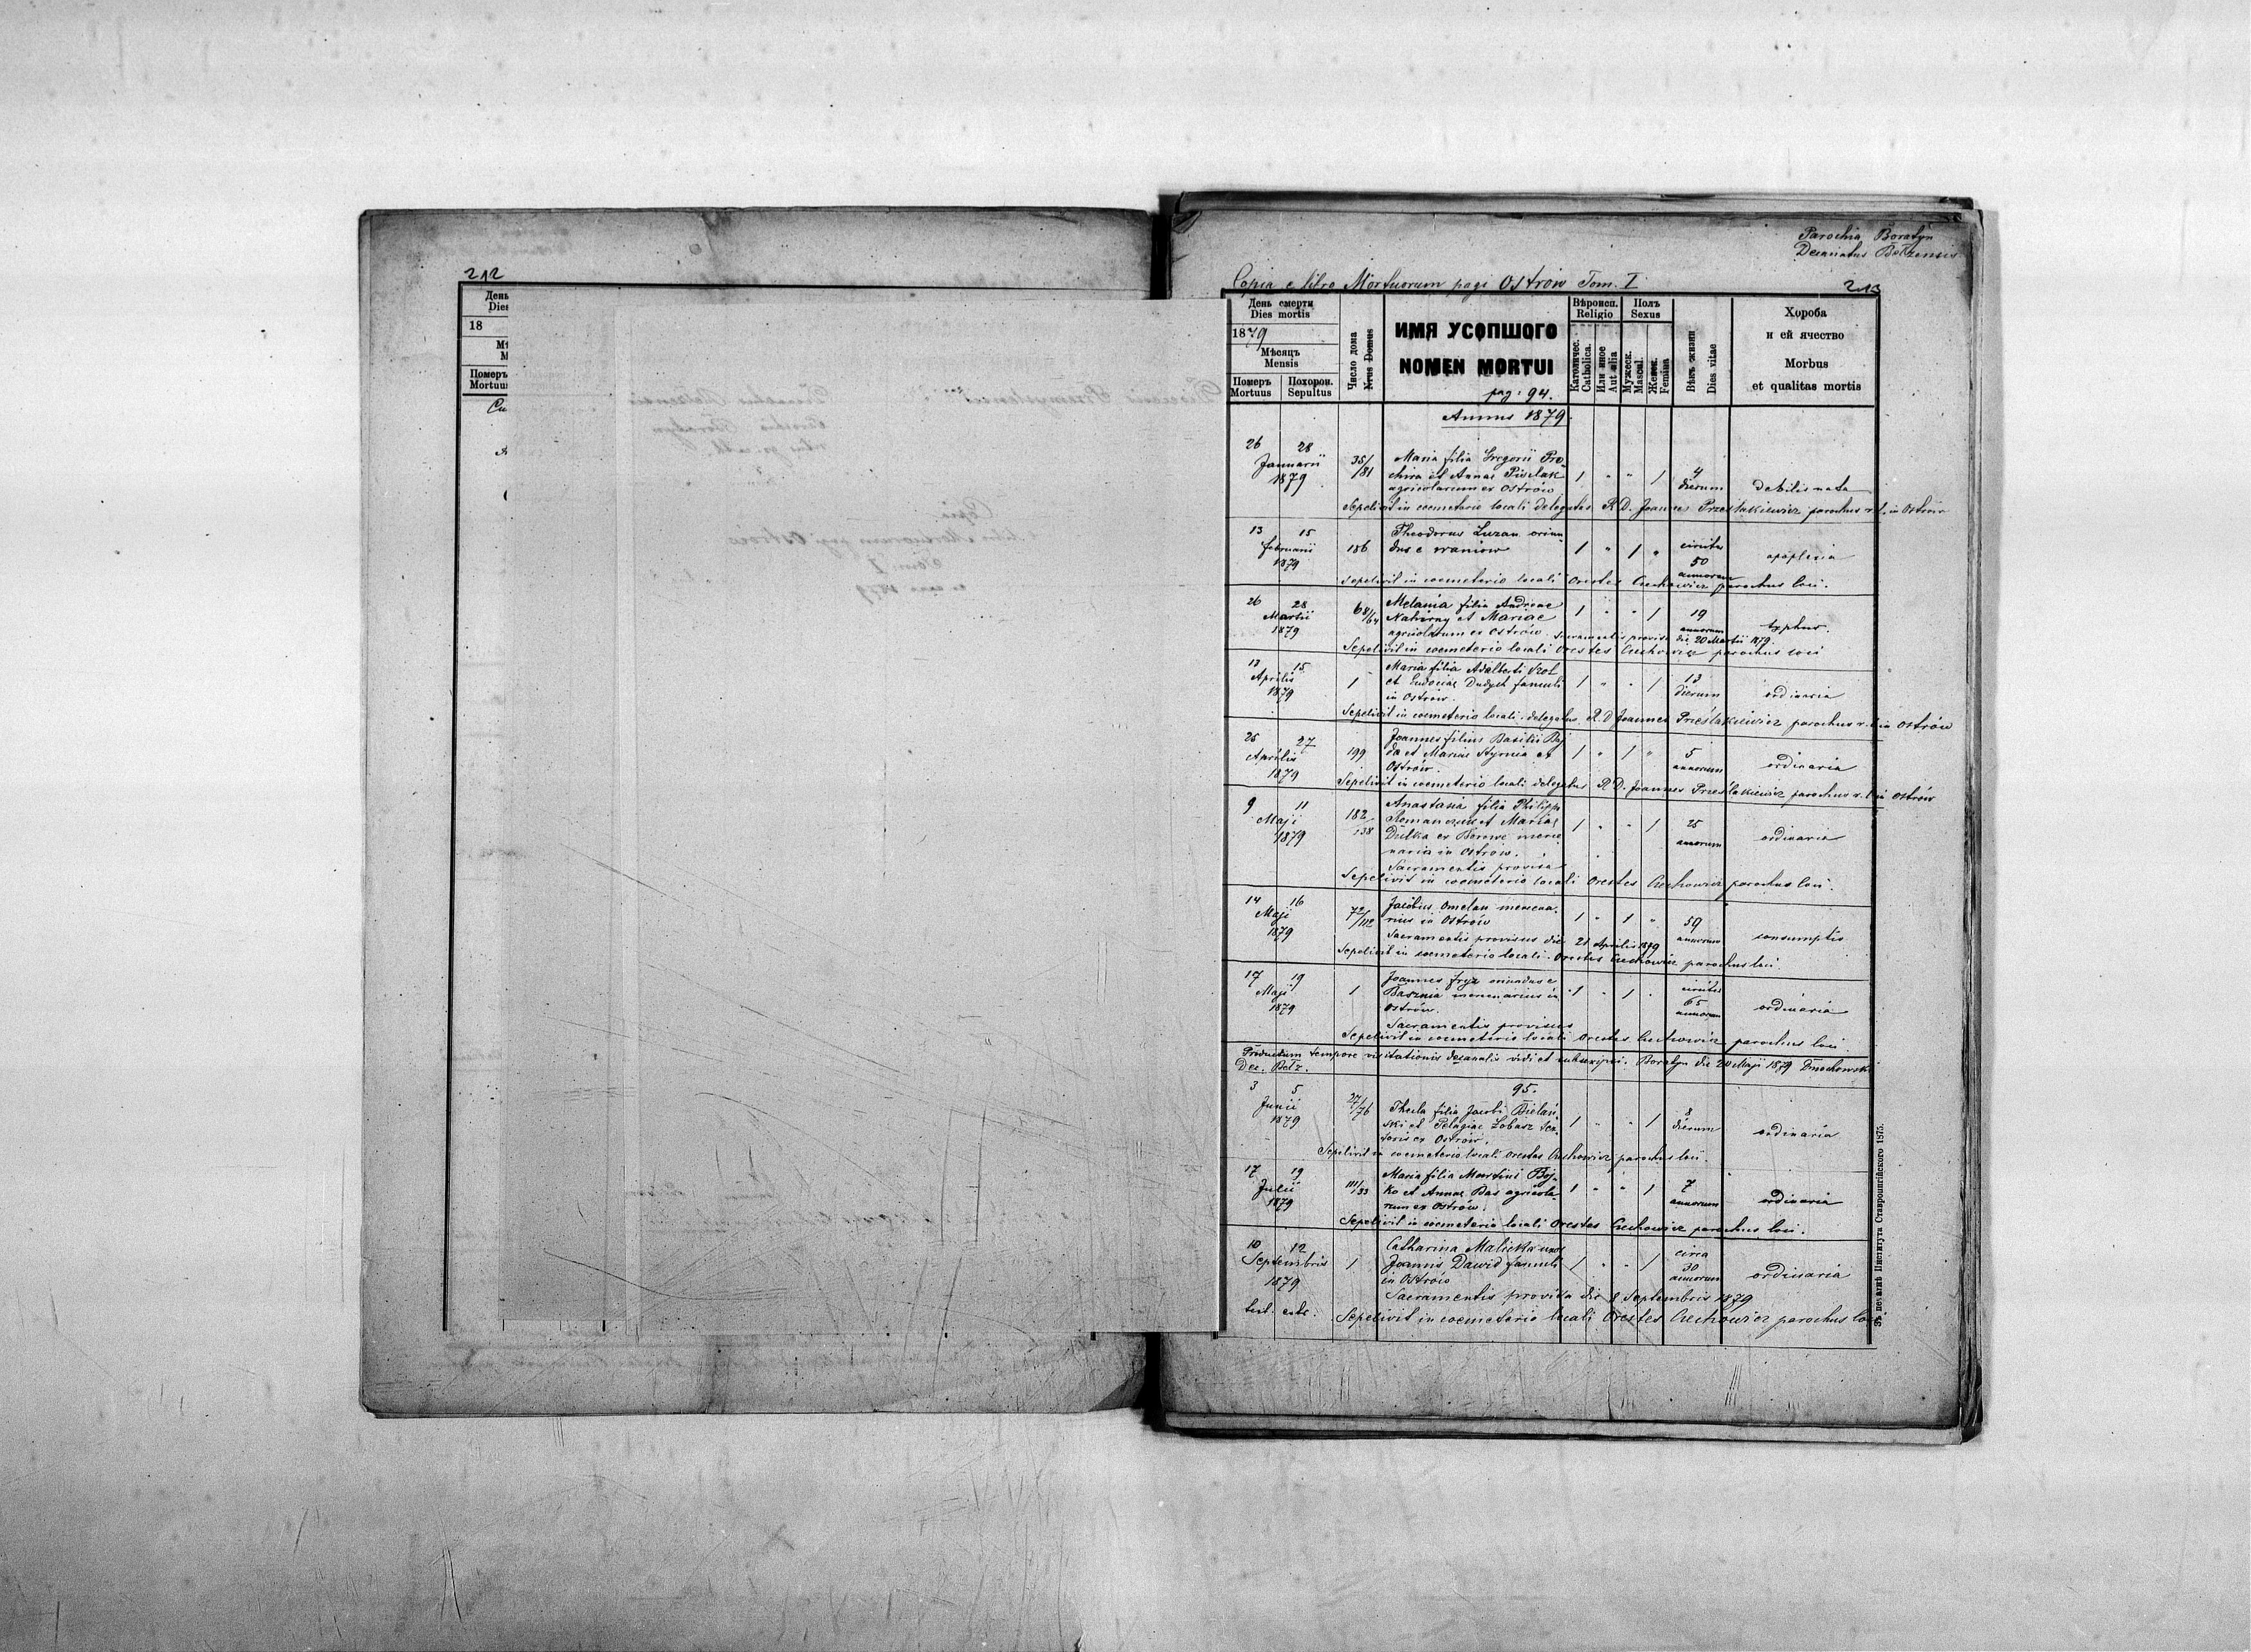 212
День
Dies
18
Померъ
Mortuus
Parochia Boratyn
Decanatus Bełzensis
Copia e libro Mortuorum pagi Ostrów Tom. I
213
День смерти
Dies mortis
1879
Мѣсяцъ
Mensis
Померъ
Mortuus
Похорон.
Sepultus
Число дома
Nrus Domus
ИМЯ УСОПШОГО
NOMEN MORTUI
pag: 94.
Вѣроисп.
Religio
Католичес.
Catholica.
Или иное
Aut alia
Полъ
Sexus
Мужеск.
Mascul.
Женск.
Femina
Вѣкъ жизни
Dies vitae
Хороба
и ей ячество
Morbus
et qualitas mortis
Annus 1879.
26 28
Januarii
1879
35/81
Maria filia Gregorii Pro-
chira et Annae Piwtak
agricolarum ex Ostrów
1 " " 1
4
dierum
debilis nata
Sepelivit in coemeterio locali delegatus R. D. Joannes Prześlakiewicz parochus r. l. in Ostrów
13 15
Februarii
1879
186
Theodorus Luzan oriun-
dus e
1 " 1 "
circiter
50
annorum
apoplexia
Sepelivit in coemeterio locali Orestes Czechowicz parochus loci.
26 28
Martii
1879
68/64
Melania filia Andreae
Nahirny et Mariae
agricolarum ex Ostrów
1 " " 1
19
annorum
typhus.
Sacramentis provisa die 20 Martii 1879.
Sepelivit in coemeterio locali Orestes Czechowicz parochus loci
13 15
Aprilis
1879
1
Maria filia Adalberti
et Eudociae Dudych famuli
in Ostrów.
1 " " 1
13
dierum
ordinaria
Sepelivit in coemeterio locali delegatus R. D. Joannes Prześlakiewicz parochus r. l. in Ostrów
25 27
Aprilis
1879
199
Joannes filius Basilii Baj
da et Mariae Styrnia ex
Ostrów.
1 " 1 "
5
annorum
ordinaria
Sepelivit in coemeterio locali delegatus R. D. Joannes Prześlakiewicz parochus r. l. in Ostrów
9 11
Maji
1879
182/138
Anastasia filia Philippi
Romanczuk et Mariae
Dulka ex merce
naria in Ostrów.
1 " " 1
25
annorum
ordinaria
Sacramentis provisa
Sepelivit in coemeterio locali Orestes Czechowicz parochus loci.
14 16
Maji
1879
72/112
Jacobus Omelan mercena-
rius in Ostrów
1 " 1 "
59
annorum
consumptio
Sacramentis provisus die 21 Aprilis 1879
Sepelivit in coemeterio locali Orestes Czechowicz parochus loci.
17 19
Maji
1879
1
Joannes Fryz oriundus e
Basznia mercenarius in
Ostrów.
1 " 1 "
circiter
65
annorum
ordinaria
Sacramentis provisus
Sepelivit in coemeterio locali Orestes Czechowicz parochus loci
Productum tempore visitationis decanalis vidi et subscripsi. Boratyn die 20 Maji 1879
Dec. Bełz.
3 5
Junii
1879
27/76
95.
Thecla filia Jacobi Bielań-
ski et Pelagiae Łobasz
ex Ostrów.
1 " " 1
8
dierum
ordinaria
Sepelivit in coemeterio locali Orestes Czechowicz parochus loci.
17 19
Julii
1879
111/33
Maria filia Martini Boj-
ko et Annae Bas agricola-
rum ex Ostrów.
1 " " 1
7
annorum
ordinaria
Sepelivit in coemeterio locali Orestes Czechowicz parochus loci.
10 12
Septembris
1879
1
Catharina Malicka uxor
Joannis Dawid famuli
in Ostrów
1 " " 1
circa
30
annorum
ordinaria
Sacramentis provisa die 8 Septembris 1879
Sepelivit in coemeterio locali Orestes Czechowicz parochus loci
Зъ печатнѣ Института Ставропигійского 1875.